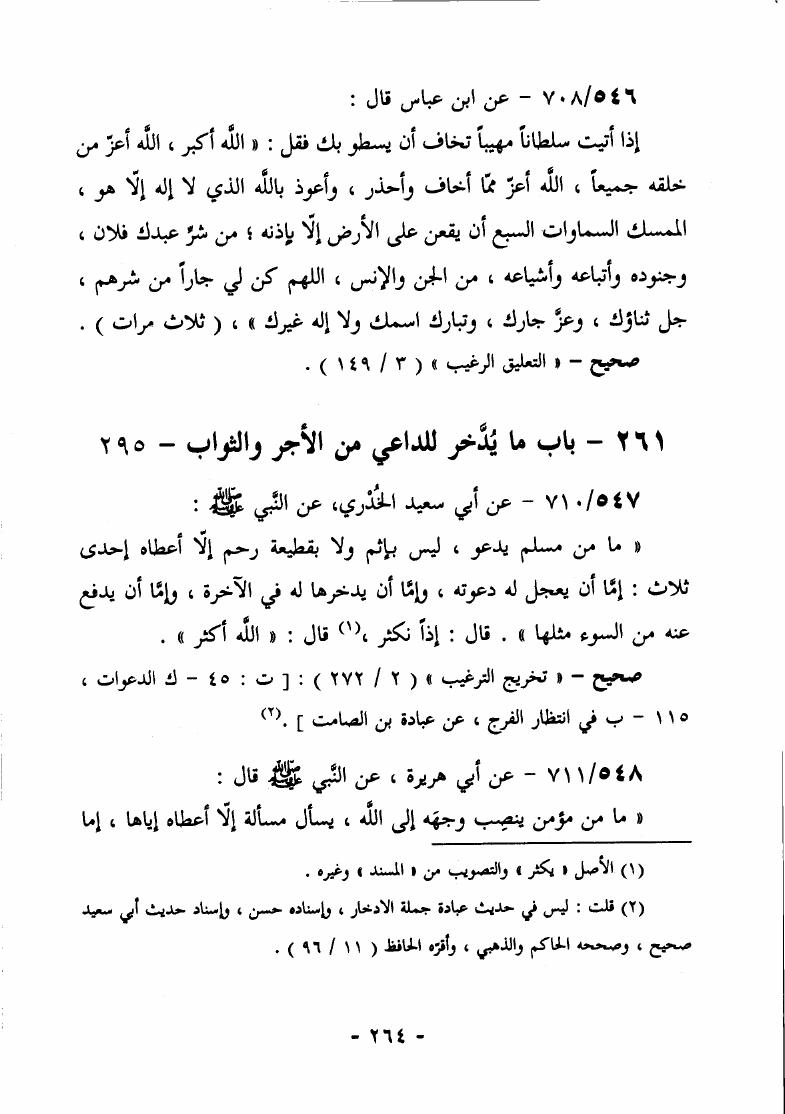 ٧٠٨/٥٤٦ – عن ابن عباس قال :
إذا أتيت سلطاناً مهيباً تخاف أن يسطو بك فقل : « اللَّه أكبر ، اللَّه أعزّ من
خلقه جميعاً ، اللَّه أعزّ ممّا أخاف وأحذر ، وأعوذ باللَّه الذي لا إله إلّا هو ،
الممسك السماوات السبع أن يقعن على الأرض إلّا بإذنه ؛ من شرِّ عبدك فلان ،
وجنوده وأتباعه وأشياعه ، من الجن والإنس ، اللهم كن لي جاراً من شرهم ،
جل ثناؤك ، وعزَّ جارك ، وتبارك اسمك ولا إله غيرك » ، ( ثلاث مرات ) .
صحيح – « التعليق الرغيب » ( ٣ / ١٤٩ ) .
٢٦١ – باب ما يُدَّخر للداعي من الأجر والثواب – ٢٩٥
٧١٠/٥٤٧ – عن أبي سعيد الخُدْري، عن النَّبي ﷺ :
« ما من مسلم يدعو ، ليس بإثم ولا بقطيعة رحم إلّا أعطاه إحدى
ثلاث : إمَّا أن يعجل له دعوته ، وإمَّا أن يدخرها له في الآخرة ، وإمَّا أن يدفع
عنه من السوء مثلها » . قال : إذاً نكثر ،(١) قال : « اللَّه أكثر » .
صحيح – « تخريج الترغيب » ( ٢ / ٢٧٢ ) : [ ت : ٤٥ – ك الدعوات ،
١١٥ – ب في انتظار الفرج ، عن عبادة بن الصامت ] .(٢)
٧١١/٥٤٨ – عن أبي هريرة ، عن النَّبي ﷺ قال :
« ما من مؤمن ينصِب وجهَه إلى اللَّه ، يسأل مسألة إلّا أعطاه إياها ، إما
(١) الأصل « يكثر » والتصويب من « المسند » وغيره .
(٢) قلت : ليس في حديث عبادة جملة الادخار ، وإسناده حسن ، وإسناد حديث أبي سعيد
صحيح ، وصححه الحاكم والذهبي ، وأقرّه الحافظ ( ١١ / ٩٦ ) .
- ٢٦٤ -